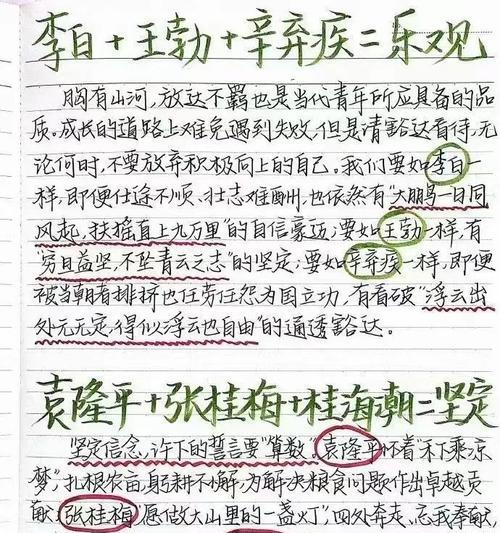 李白+王勃+辛弃疾=乐观
胸有山河,放达不羁也是当代青年所应具备的品
质。成长的道路上难免遇到失败,但是请豁达看待,无
论何时,不要放弃积极向上的自己。我们要如李白一
样,即便仕途不顺、壮志难酬,也依然有"大鹏一日同
风起,扶摇直上九万里"的自信豪迈;要如王勃一样,有
"穷且益坚,不坠青云之志"的坚定;要如辛弃疾一样,即便
被当朝者排挤也任劳任怨为国立功,有看破"浮云出
处元无定,得似浮云也自由"的通透豁达。
袁隆平+张桂梅+桂海潮=坚定
坚定信念,许下的誓言要"算数"。袁隆平怀着"禾下乘凉
梦",扎根农亩,躬耕不懈,为解决粮食问题作出卓越贡
献,张桂梅"愿做大山里的一盏灯"四处奔走、忘我奉献,